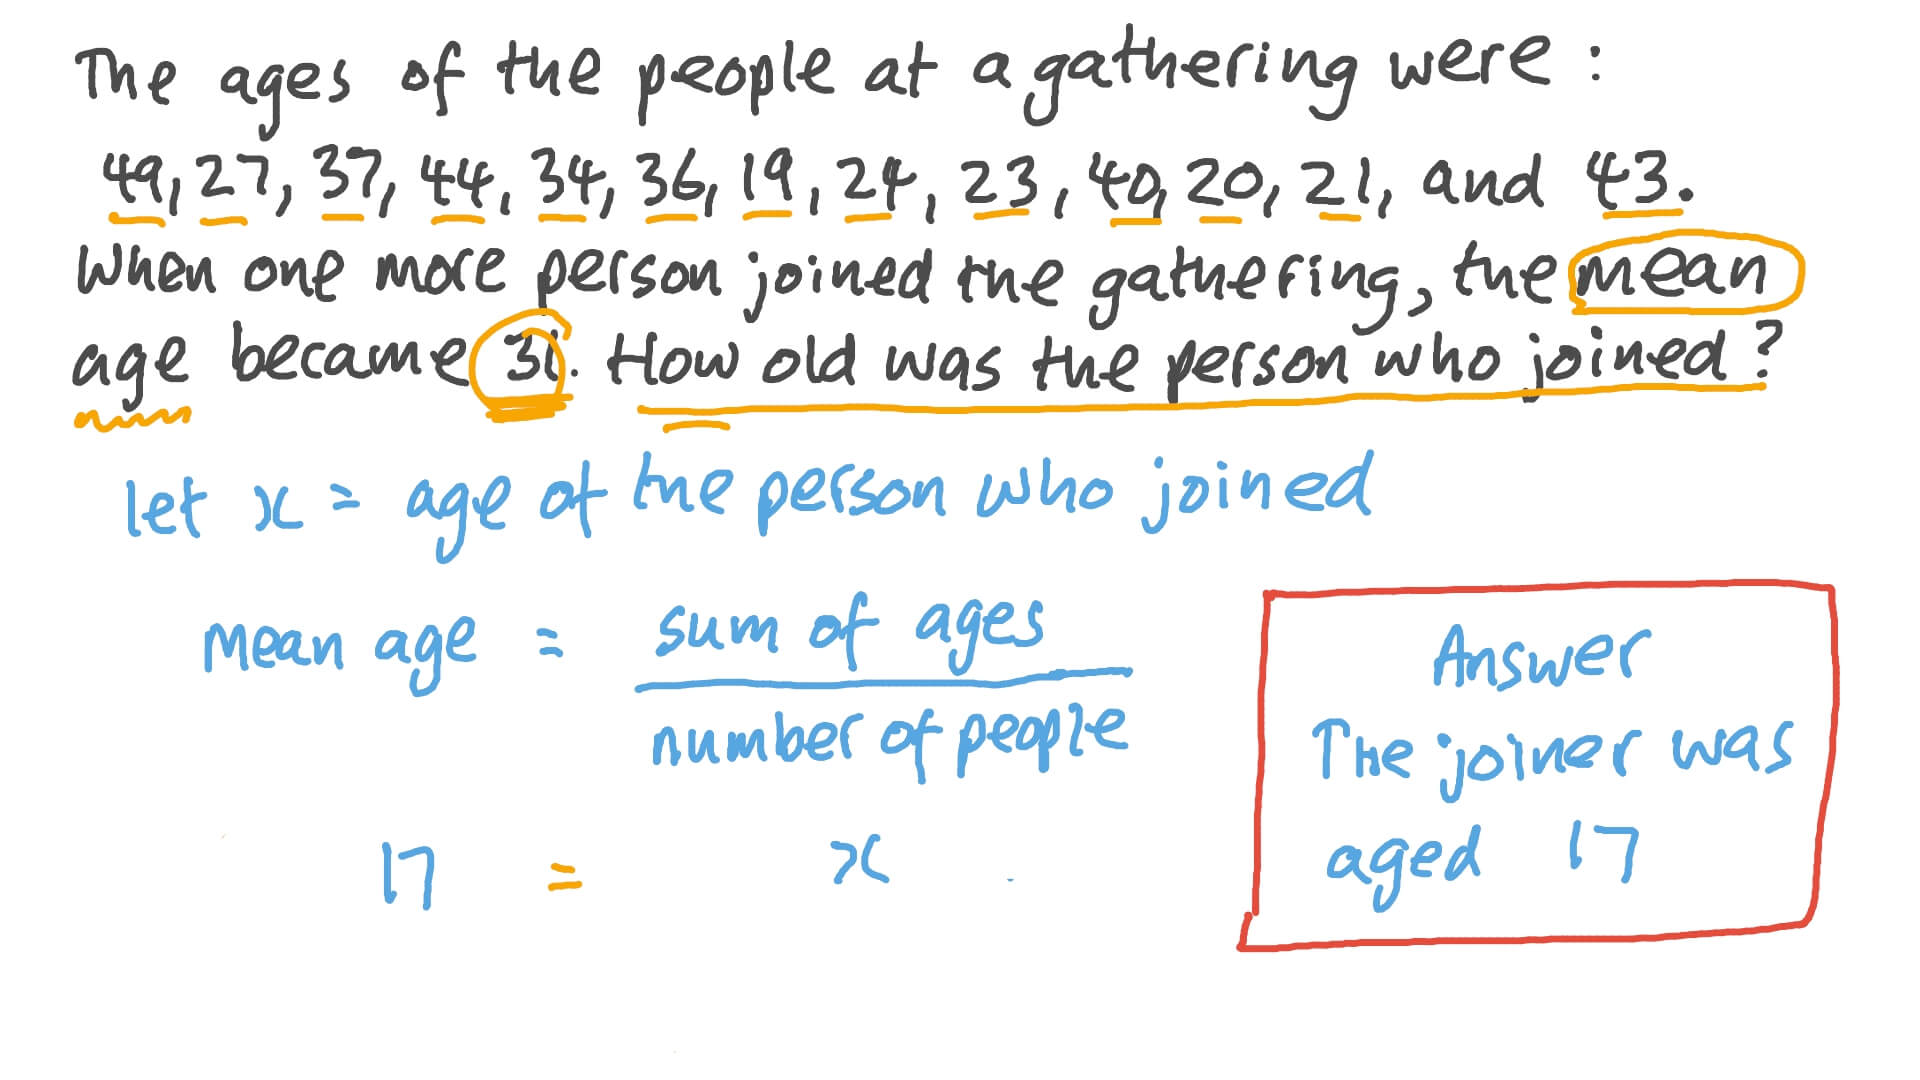 The ages of the people at a gathering were:
49, 27, 37, 44, 34, 36, 19, 24, 23, 40, 20, 21, and 43.
When one more person joined the gathering, the mean
age became 31. How old was the person who joined?
let x = age of the person who joined
Mean age = sum of ages
number of people
17 = x
Answer
The joiner was
aged 17